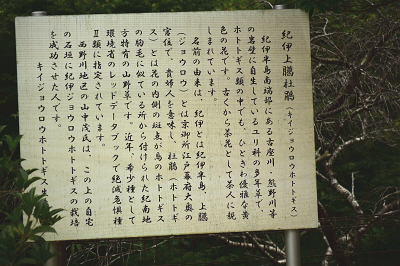 紀伊上臈杜鵑(キイジョウロウホトトギス)
紀伊半島南端部にある古座川・熊野川等
の岩壁に自生しているユリ科の多年草で、
ホトトギス類の中でも、ひときわ優雅な黄
色の花です。古くから茶花として茶人に親
しまれています。
名前の由来は、紀伊とは紀伊半島、上臈
(ジョウロウ)とは京御所江戸幕府大奥の
官位で、貴婦人を意味し、杜鵑(ホトトギ
ス)とは花の内側の斑点が鳥のホトトギス
の胸毛に似ている所から付けられた紀南地
方特有の山野草です。近年、希少種として
環境省のレッドデータブックで絶滅危惧種
Ⅱ類に指定されています。
西野川地区の山中茂氏は、この上の自宅
の石垣に紀伊ジョウロウホトトギスの栽培
を成功させた人です。
キイジョウロウホトトギス生